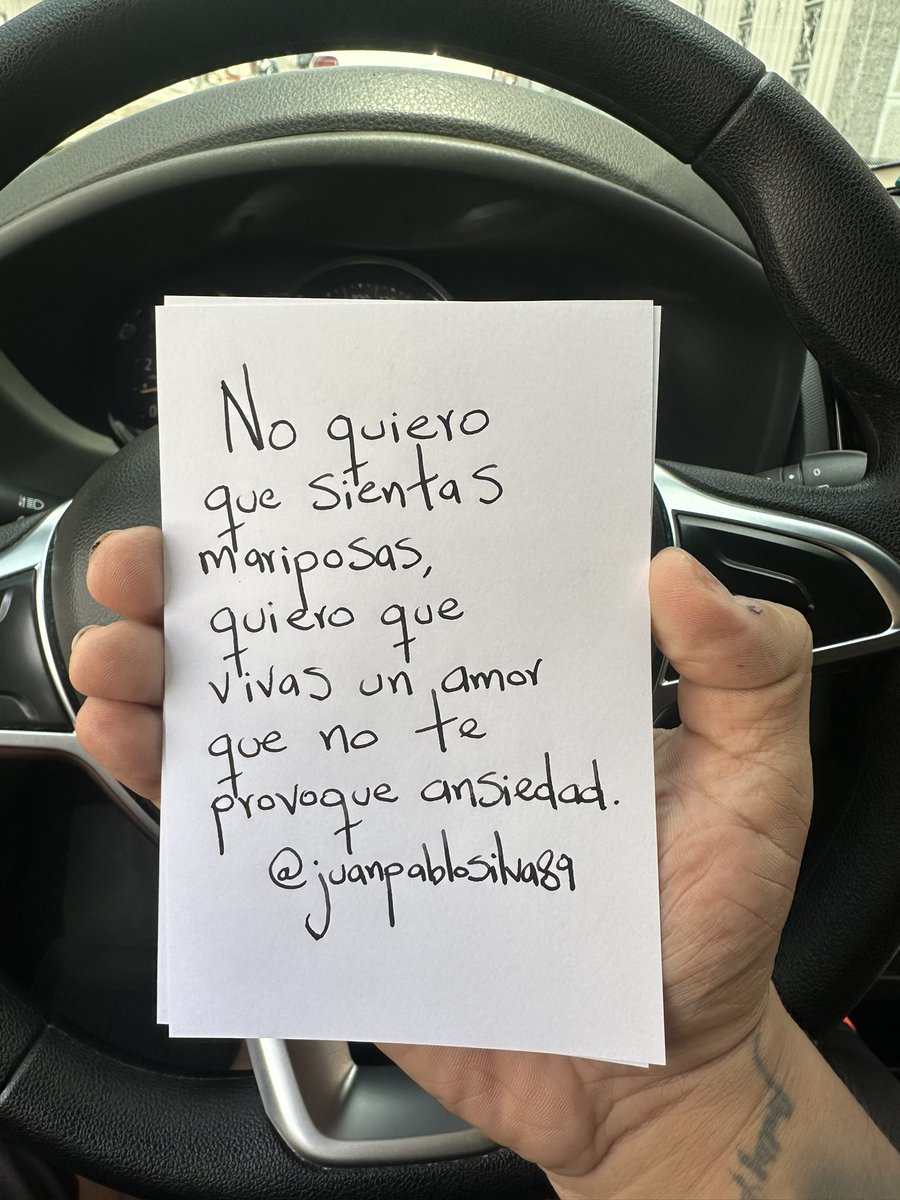 No quiero
que sientas
mariposas,
quiero que
vivas un amor
que no te
provoque ansiedad.
@juanpablosilva89